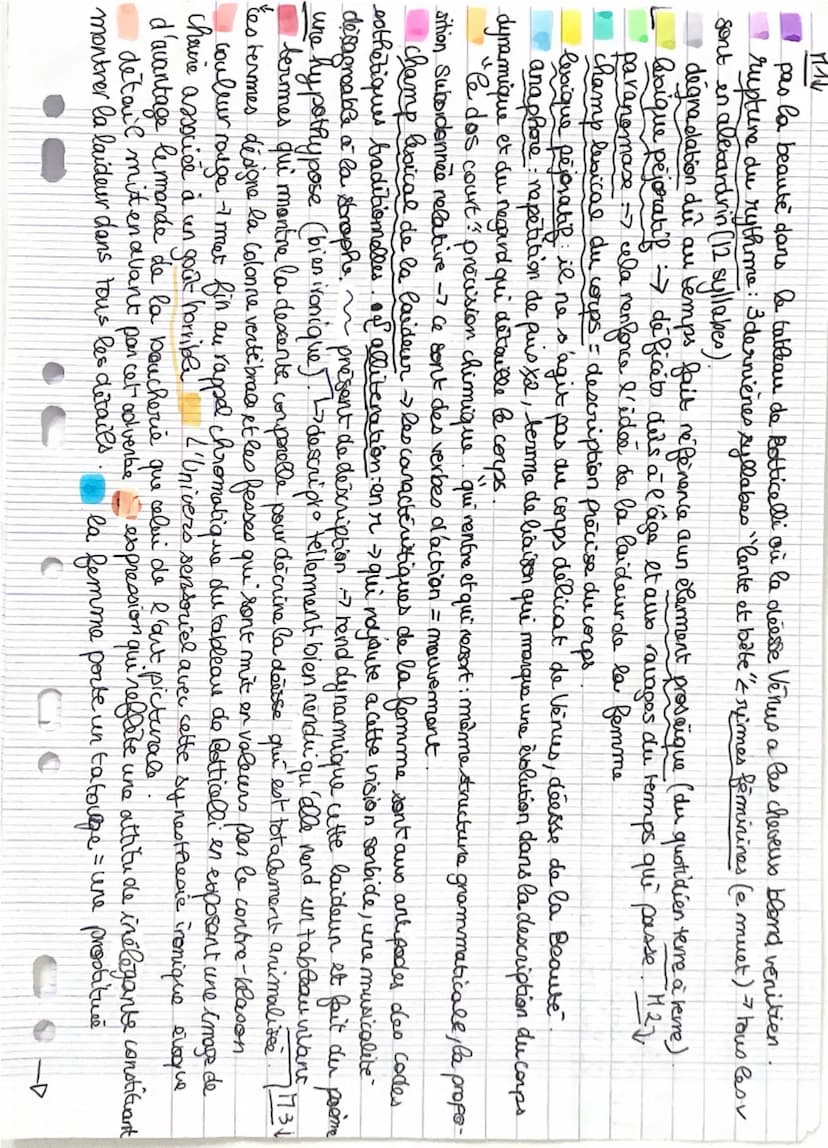 M1↓
pas la beauté dans le tableau de Botticelli où la déesse Vénus a les cheveux blond vénitien.
rupture du rythme : 3 dernières syllabes "lente et bête" < rimes féminines (e muet) → tous les v
sont en alexandrin (12 syllabes)
dégradation dû au temps fait référence a un élément prosaïque (du quotidien terre à terre)
lexique péjoratif → déficits dûs à l'âge et aux ravages du temps qui passe. M2↓
paronomase → cela renforce l'idée de la laideur de la femme
champ lexical du corps = description précise du corps.
lexique péjoratif : il ne s'agit pas du corps délicat de Vénus, déesse de la Beauté.
anaphore : répétition de puis x2, terme de liaison qui marque une évolution dans la description du corps
dynamique et du regard qui détaille le corps.
"le dos court" : précision chimique. "qui rentre et qui ressort : même structure grammaticale, la propo-
sition subordonnée relative → ce sont des verbes d'action = mouvement.
champ lexical de la laideur → les caractéristiques de la femme sont aux antipodes des codes
esthétiques traditionnelles. allitération : en r → qui rajoute a cette vision sordide, une musicalité
désagréable à la strophe. ~~ présent de description → rend dynamique cette laideur et fait du poème
une hypothypose (bien ironique). ↳ descrip° tellement bien rendu qu'elle rend un tableau vivant
termes qui montre la descente corporelle pour décrire la déesse qui est totalement animalisée. M3↓
les termes désigne la colonne vertébrae et les fesses qui sont mit en valeurs par le contre-blason
couleur rouge → met fin au rappel chromatique du tableau de Botticelli en exposant une image de
chaire associée à un goût horrible L'Univers sensoriel avec cette synesthesie ironique évoque
d'avantage le monde de la boucherie que celui de l'art picturale.
détail mit en avant par cet adverbe expression qui reflète une attitude inélégante constituant
montrer la laideur dans tous les détails. la femme porte un tatouage = une prostituée
→